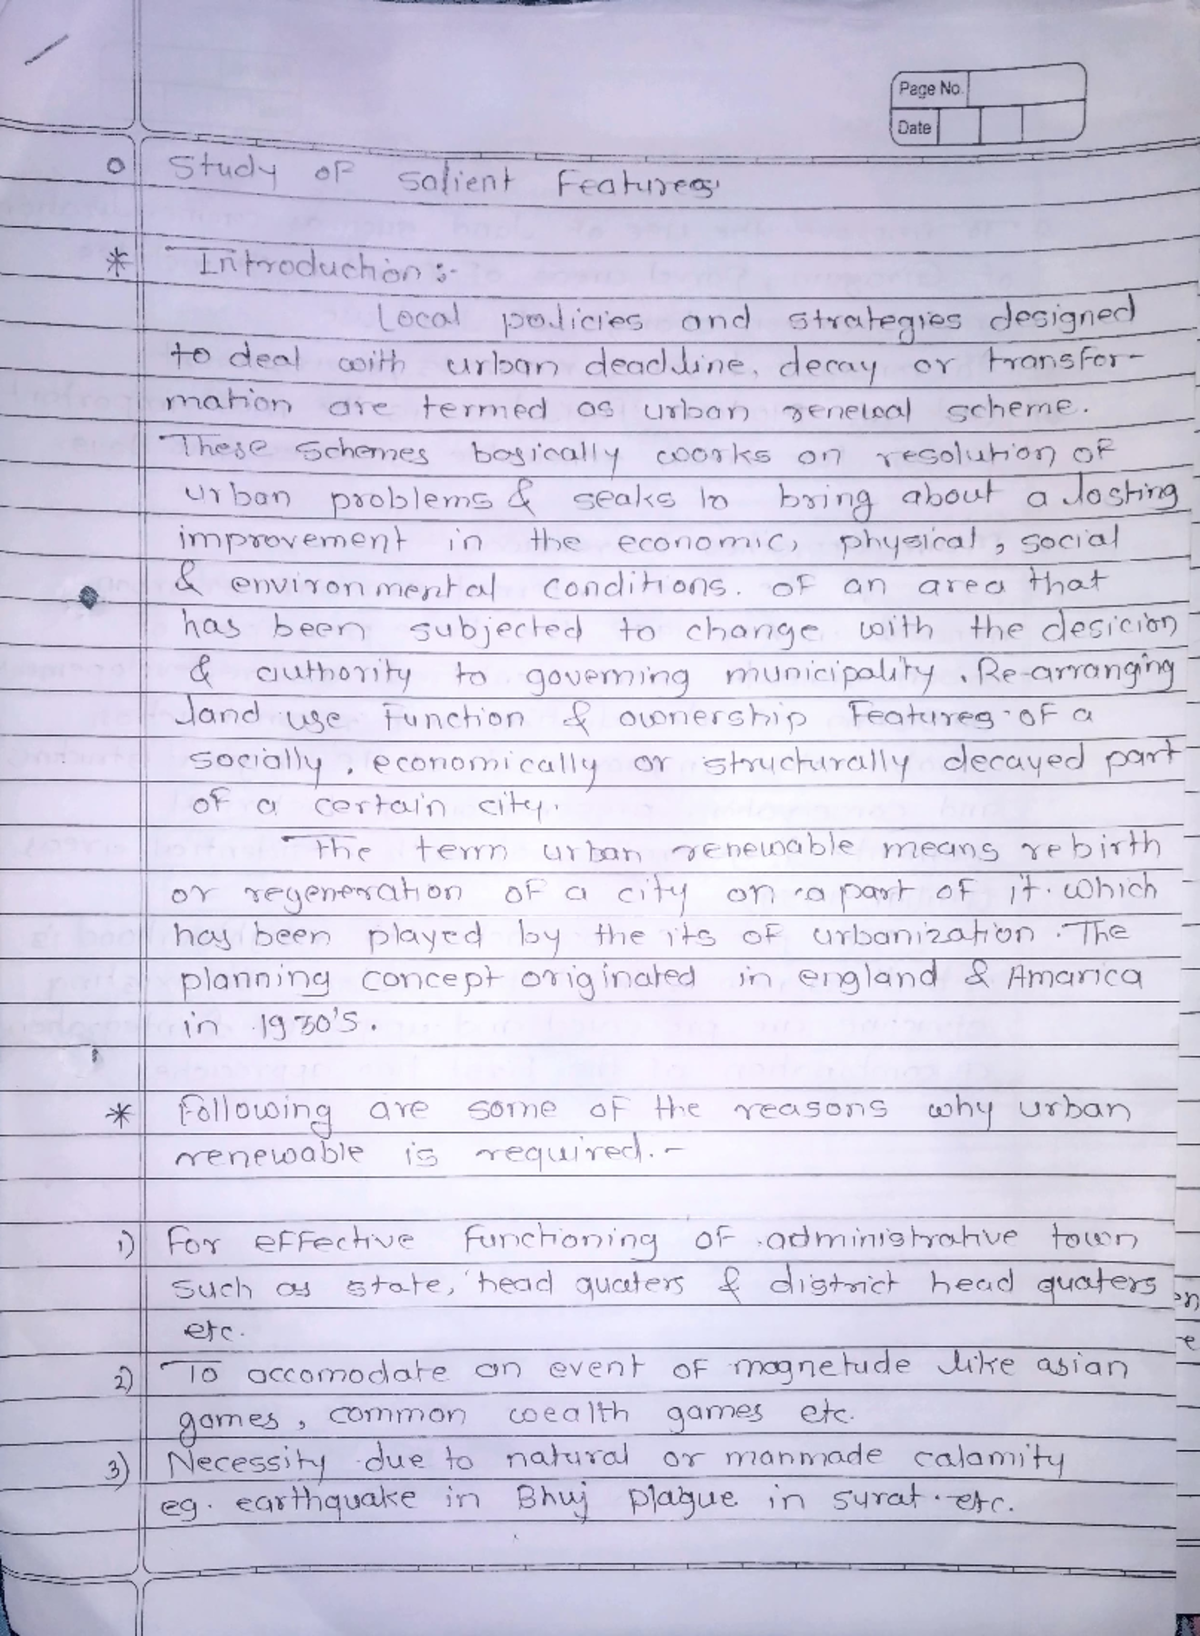 Page No.
Date
o Study of Salient Features
* Introduction :-
Local policies and strategies designed
to deal with urban deadline, decay or transfor-
mation are termed as urban renewal scheme.
These schemes basically works on resolution of
urban problems & seaks to bring about a lasting
improvement in the economic, physical, social
& environmental conditions. of an area that
has been subjected to change with the desicion
& authority to governing municipality. Re-arranging
land use function & ownership features of a
socially, economically or structurally decayed part
of a certain city.
The term urban renewable means rebirth
or regeneration of a city on a part of it. which
has been played by the its of urbanization. The
planning concept originated in england & Amarica
in 1930's.
* Following are some of the reasons why urban
renewable is required. -
1) For effective functioning of administrative town
such as state, head quaters & district head quaters
etc.
2) To accomodate an event of magnetude like asian
games, common wealth games etc.
3) Necessity due to natural or manmade calamity
eg. earthquake in Bhuj plague in surat. etc.